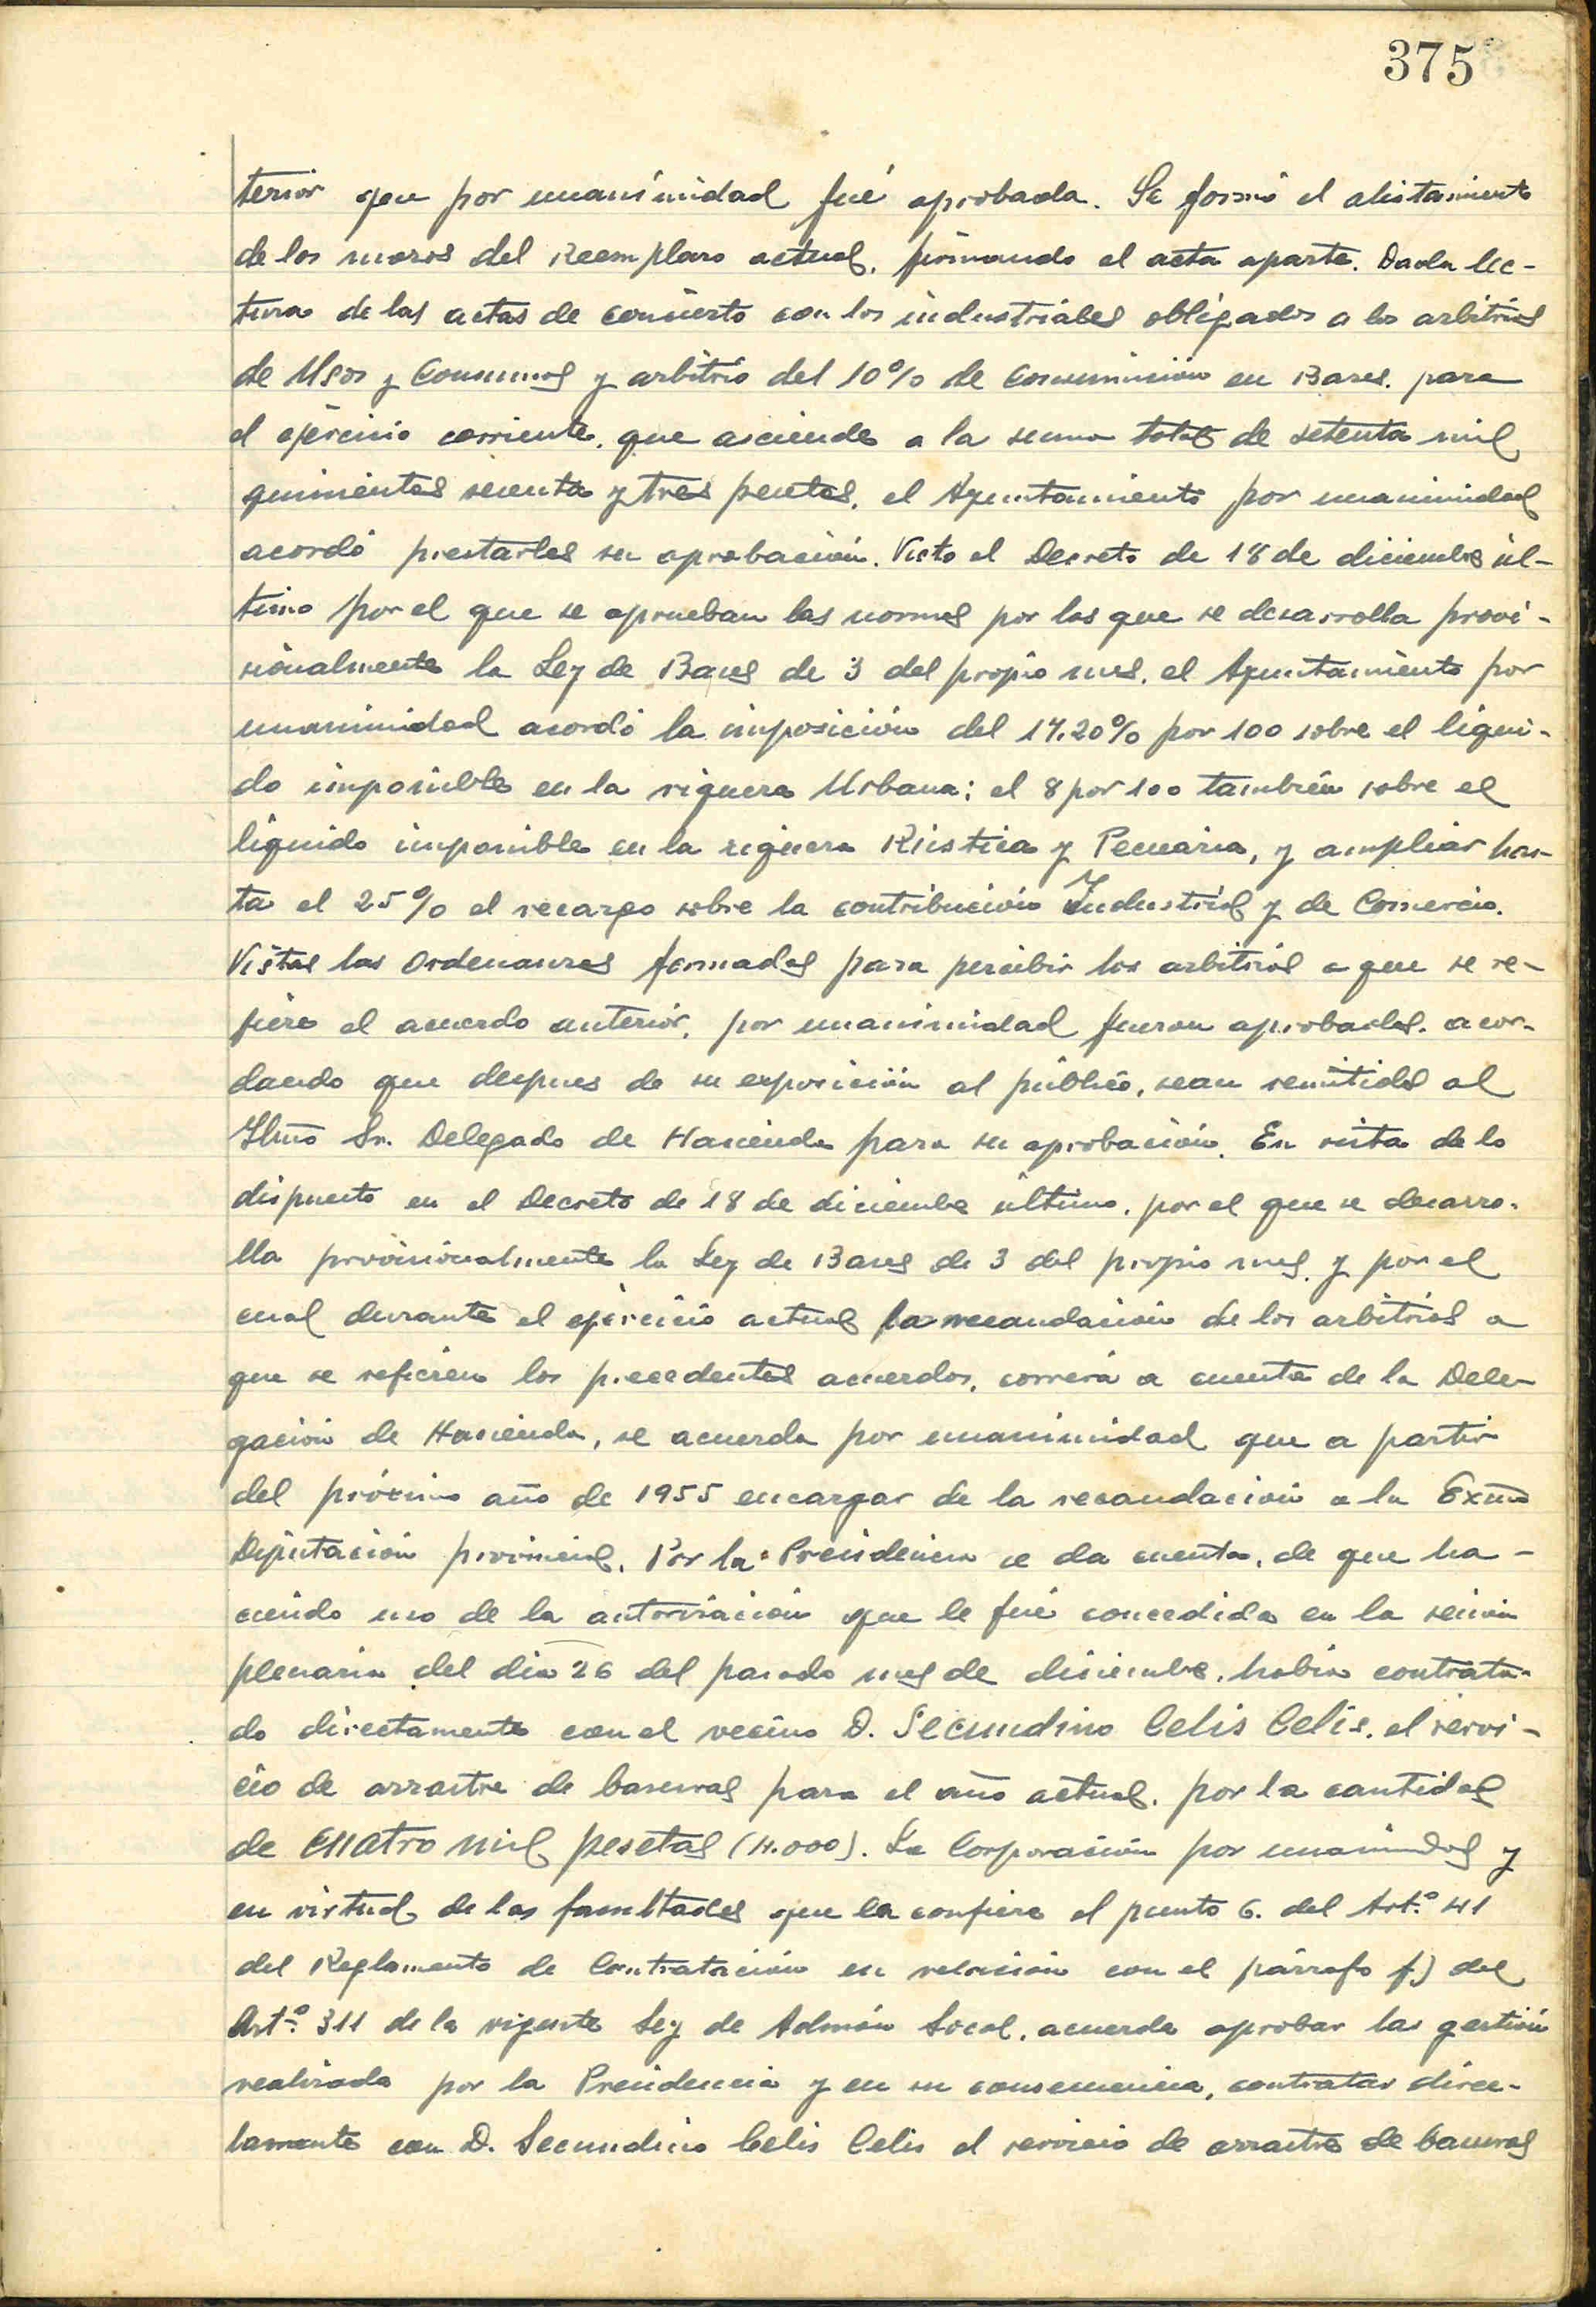 375
terior que por unanimidad fué aprobada. Se formó el alistamiento
de los mozos del Reemplazo actual, firmando el acta aparte. Dada lec-
tura de las actas de concierto con los industriales obligados a los arbitrios
de Usos y Consumos y arbitrio del 10% de consumición en Bares, para
el ejercicio corriente, que asciende a la suma total de setenta mil
quinientas sesenta y tres pesetas, el Ayuntamiento por unanimidad
acordó prestarles su aprobación. Visto el Decreto de 18 de diciembre úl-
timo por el que se aprueban las normas por las que se desarrolla provi-
sionalmente la Ley de Bases de 3 del propio mes, el Ayuntamiento por
unanimidad acordó la imposición del 17,20% por 100 sobre el líqui-
do imponible en la riqueza Urbana; el 8 por 100 también sobre el
líquido imponible en la riqueza Rústica y Pecuaria, y ampliar has-
ta el 25% el recargo sobre la contribución Industrial y de Comercio.
Vistas las Ordenanzas formadas para percibir los arbitrios a que se re-
fiere el acuerdo anterior, por unanimidad fueron aprobadas, acor-
dando que despues de su exposición al público, sean remitidas al
Ilmo Sr. Delegado de Hacienda para su aprobación. En vista de lo
dispuesto en el Decreto de 18 de diciembre último, por el que se desarro-
lla provisionalmente la Ley de Bases de 3 del propio mes, y por el
cual durante el ejercicio actual la recaudación de los arbitrios a
que se refieren los precedentes acuerdos, correrá a cuenta de la Dele-
gación de Hacienda, se acuerda por unanimidad que a partir
del próximo año de 1955 encargar de la recaudación a la Exma
Diputación provincial. Por la Presidencia se da cuenta, de que ha-
ciendo uso de la autorización que le fué concedida en la sesión
plenaria del dia 26 del pasado mes de diciembre, habia contrata-
do directamente con el vecino D. Secundino Celis Celis, el servi-
cio de arrastre de basuras para el año actual, por la cantidad
de cuatro mil pesetas (4.000). La Corporación por unanimidad y
en virtud de las facultades que la confiere el punto 6. del Artº. 41
del Reglamento de Contratación en relación con el párrafo f) del
Artº. 311 de la vigente Ley de Admón Local, acuerda aprobar las gestión
realizada por la Presidencia y en su consecuencia, contratar direc-
tamente con D. Secundino Celis Celis el servicio de arrastre de basuras